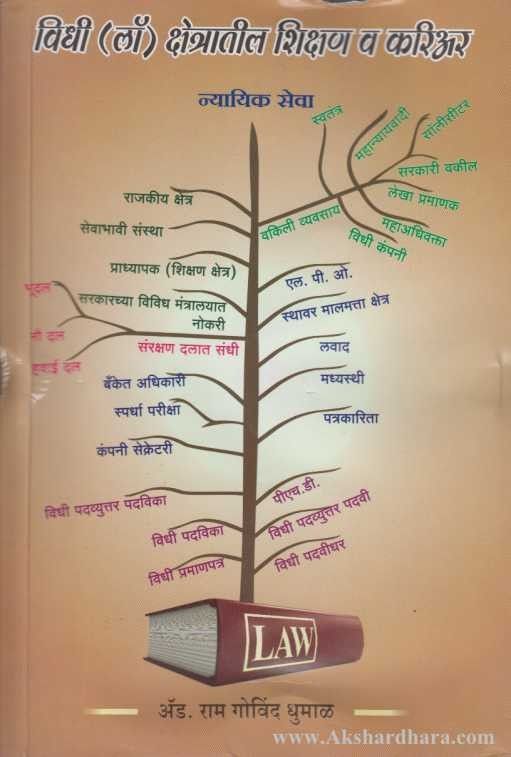 विधी (लॉ) क्षेत्रातील शिक्षण व करिअर
न्यायिक सेवा
स्वतंत्र
महान्यायवादी
सॉलीसीटर
सरकारी वकील
लेखा प्रमाणक
महाअधिवक्ता
विधी कंपनी
वकिली व्यवसाय
राजकीय क्षेत्र
सेवाभावी संस्था
प्राध्यापक (शिक्षण क्षेत्र)
सरकारच्या विविध मंत्रालयात
नोकरी
भूदल
नौ दल
हवाई दल
संरक्षण दलात संधी
बँकेत अधिकारी
स्पर्धा परीक्षा
कंपनी सेक्रेटरी
एल. पी. ओ.
स्थावर मालमत्ता क्षेत्र
लवाद
मध्यस्थी
पत्रकारिता
विधी पदव्युत्तर पदविका
विधी पदविका
विधी प्रमाणपत्र
पीएच.डी.
विधी पदव्युत्तर पदवी
विधी पदवीधर
LAW
अ‍ॅड. राम गोविंद धुमाळ
www.Akshardhara.com